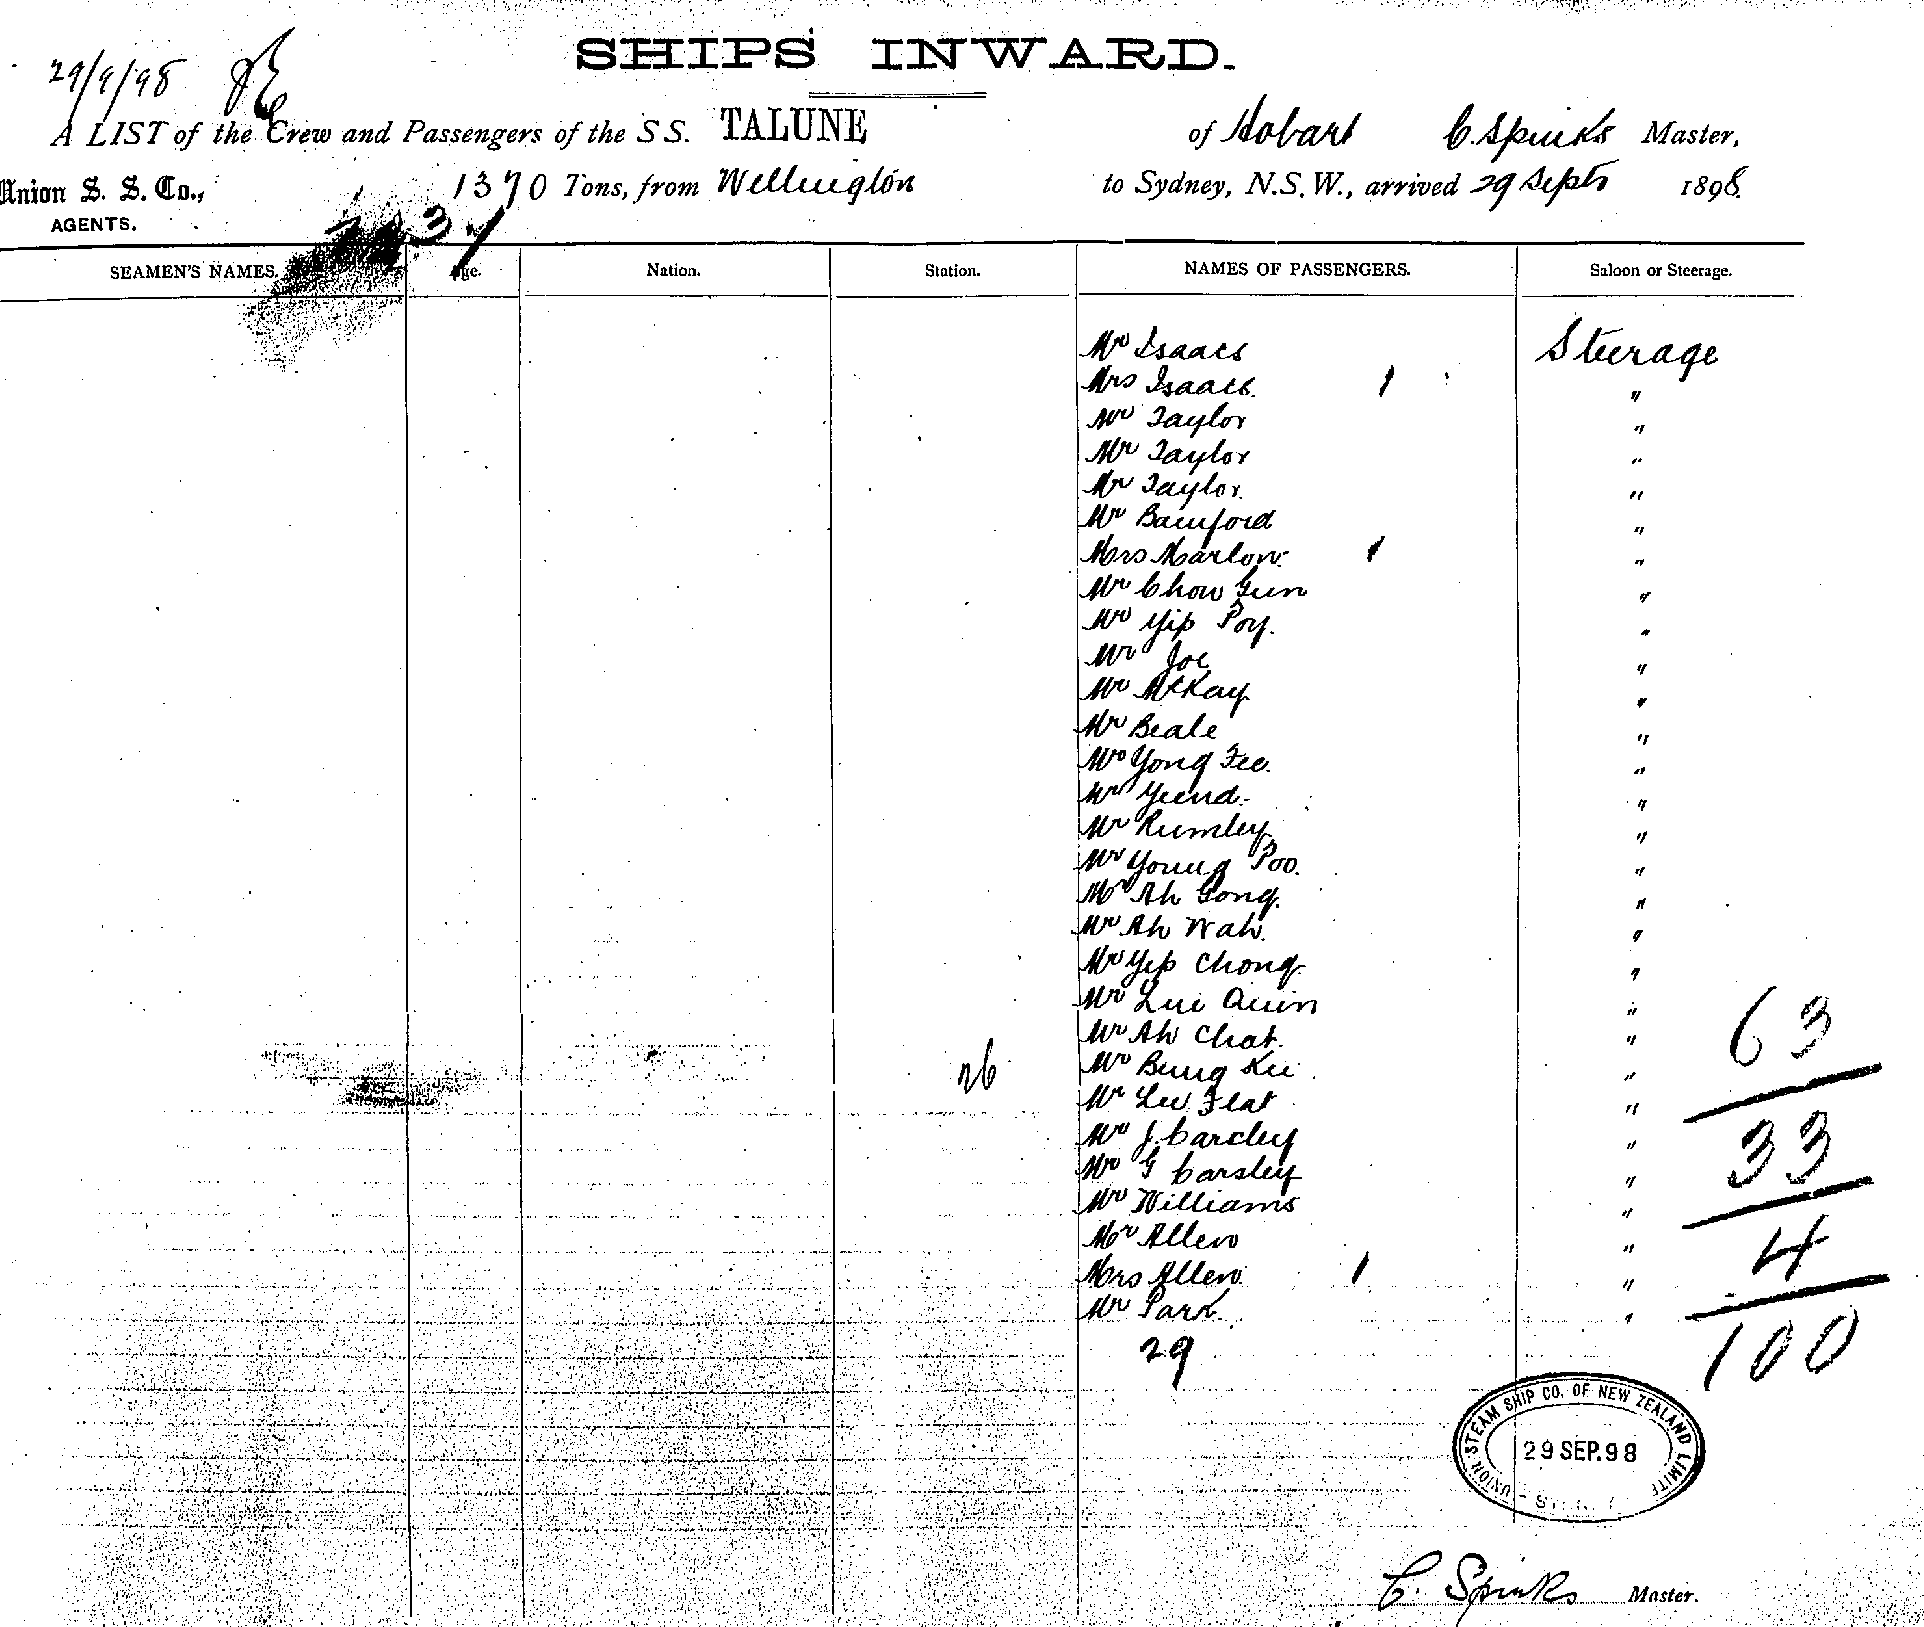 SHIPS INWARD.
29/9/98
A LIST of the Crew and Passengers of the S S. TALUNE of Hobart C. Spinks Master,
Union S. S. Co., 1370 Tons, from Wellington to Sydney, N.S.W., arrived 29 Septr 1898.
AGENTS.
SEAMEN'S NAMES. Age. Nation. Station. NAMES OF PASSENGERS. Saloon or Steerage.
Mr Isaacs Steerage
Mrs Isaacs. 1 "
Mr Taylor "
Mr Taylor "
Mr Taylor. "
Mr Bamford "
Mrs Marlow. 1 "
Mr Chow Gun "
Mr Yip Poy. "
Mr Joe "
Mr McKay "
Mr Beale "
Mr Yong Fee. "
Mr Yeend. "
Mr Rumley "
Mr Young Poo. "
Mr Ah Gong. "
Mr Ah Wah. "
Mr Yep Chong "
Mr Lui Quin "
Mr Ah Chat. "
26 Mr Bung Kee "
Mr Lee Flat "
Mr J. Carcley "
Mr G Carsley "
Mr Williams "
Mr Allen "
Mrs Allen 1 "
Mr Park. "
29
63
33
4
100
UNION STEAM SHIP CO. OF NEW ZEALAND LIMITE
29 SEP. 98
C. Spinks Master.